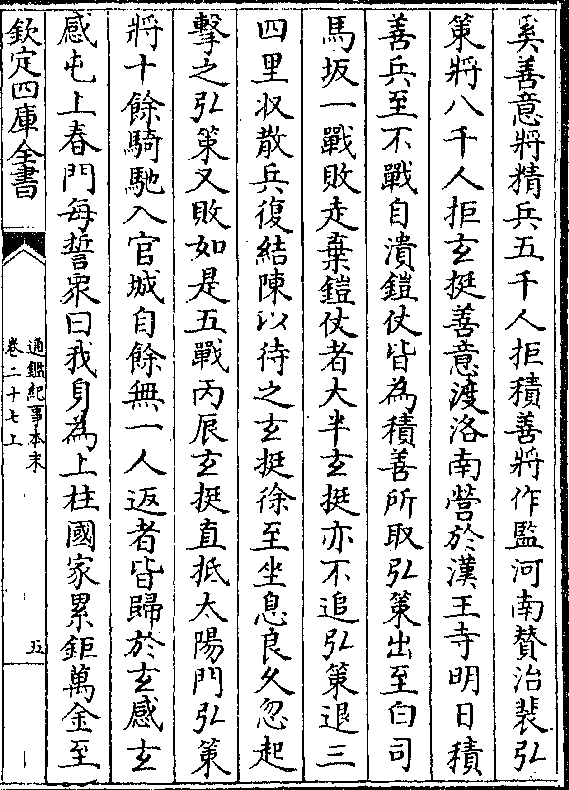 奚善意將精兵五千人拒積善將作監河南賛治裴弘
策將八千人拒玄挺善意渡洛南營於漢王寺明日積
善兵至不戰自潰鎧仗皆為積善所取弘策出至白司
馬坂一戰敗走棄鎧仗者大半玄挺亦不追弘策退三
四里収散兵復結陳以待之玄挺徐至坐息良久忽起
擊之弘策又敗如是五戰丙辰玄挺直抵太陽門弘策
將十餘騎馳入宫城自餘無一人返者皆歸於玄感玄
感屯上春門每誓衆曰我身為上柱國家累鉅萬金至
欽定四庫全書
通鑑紀事本末
卷二十七上
五